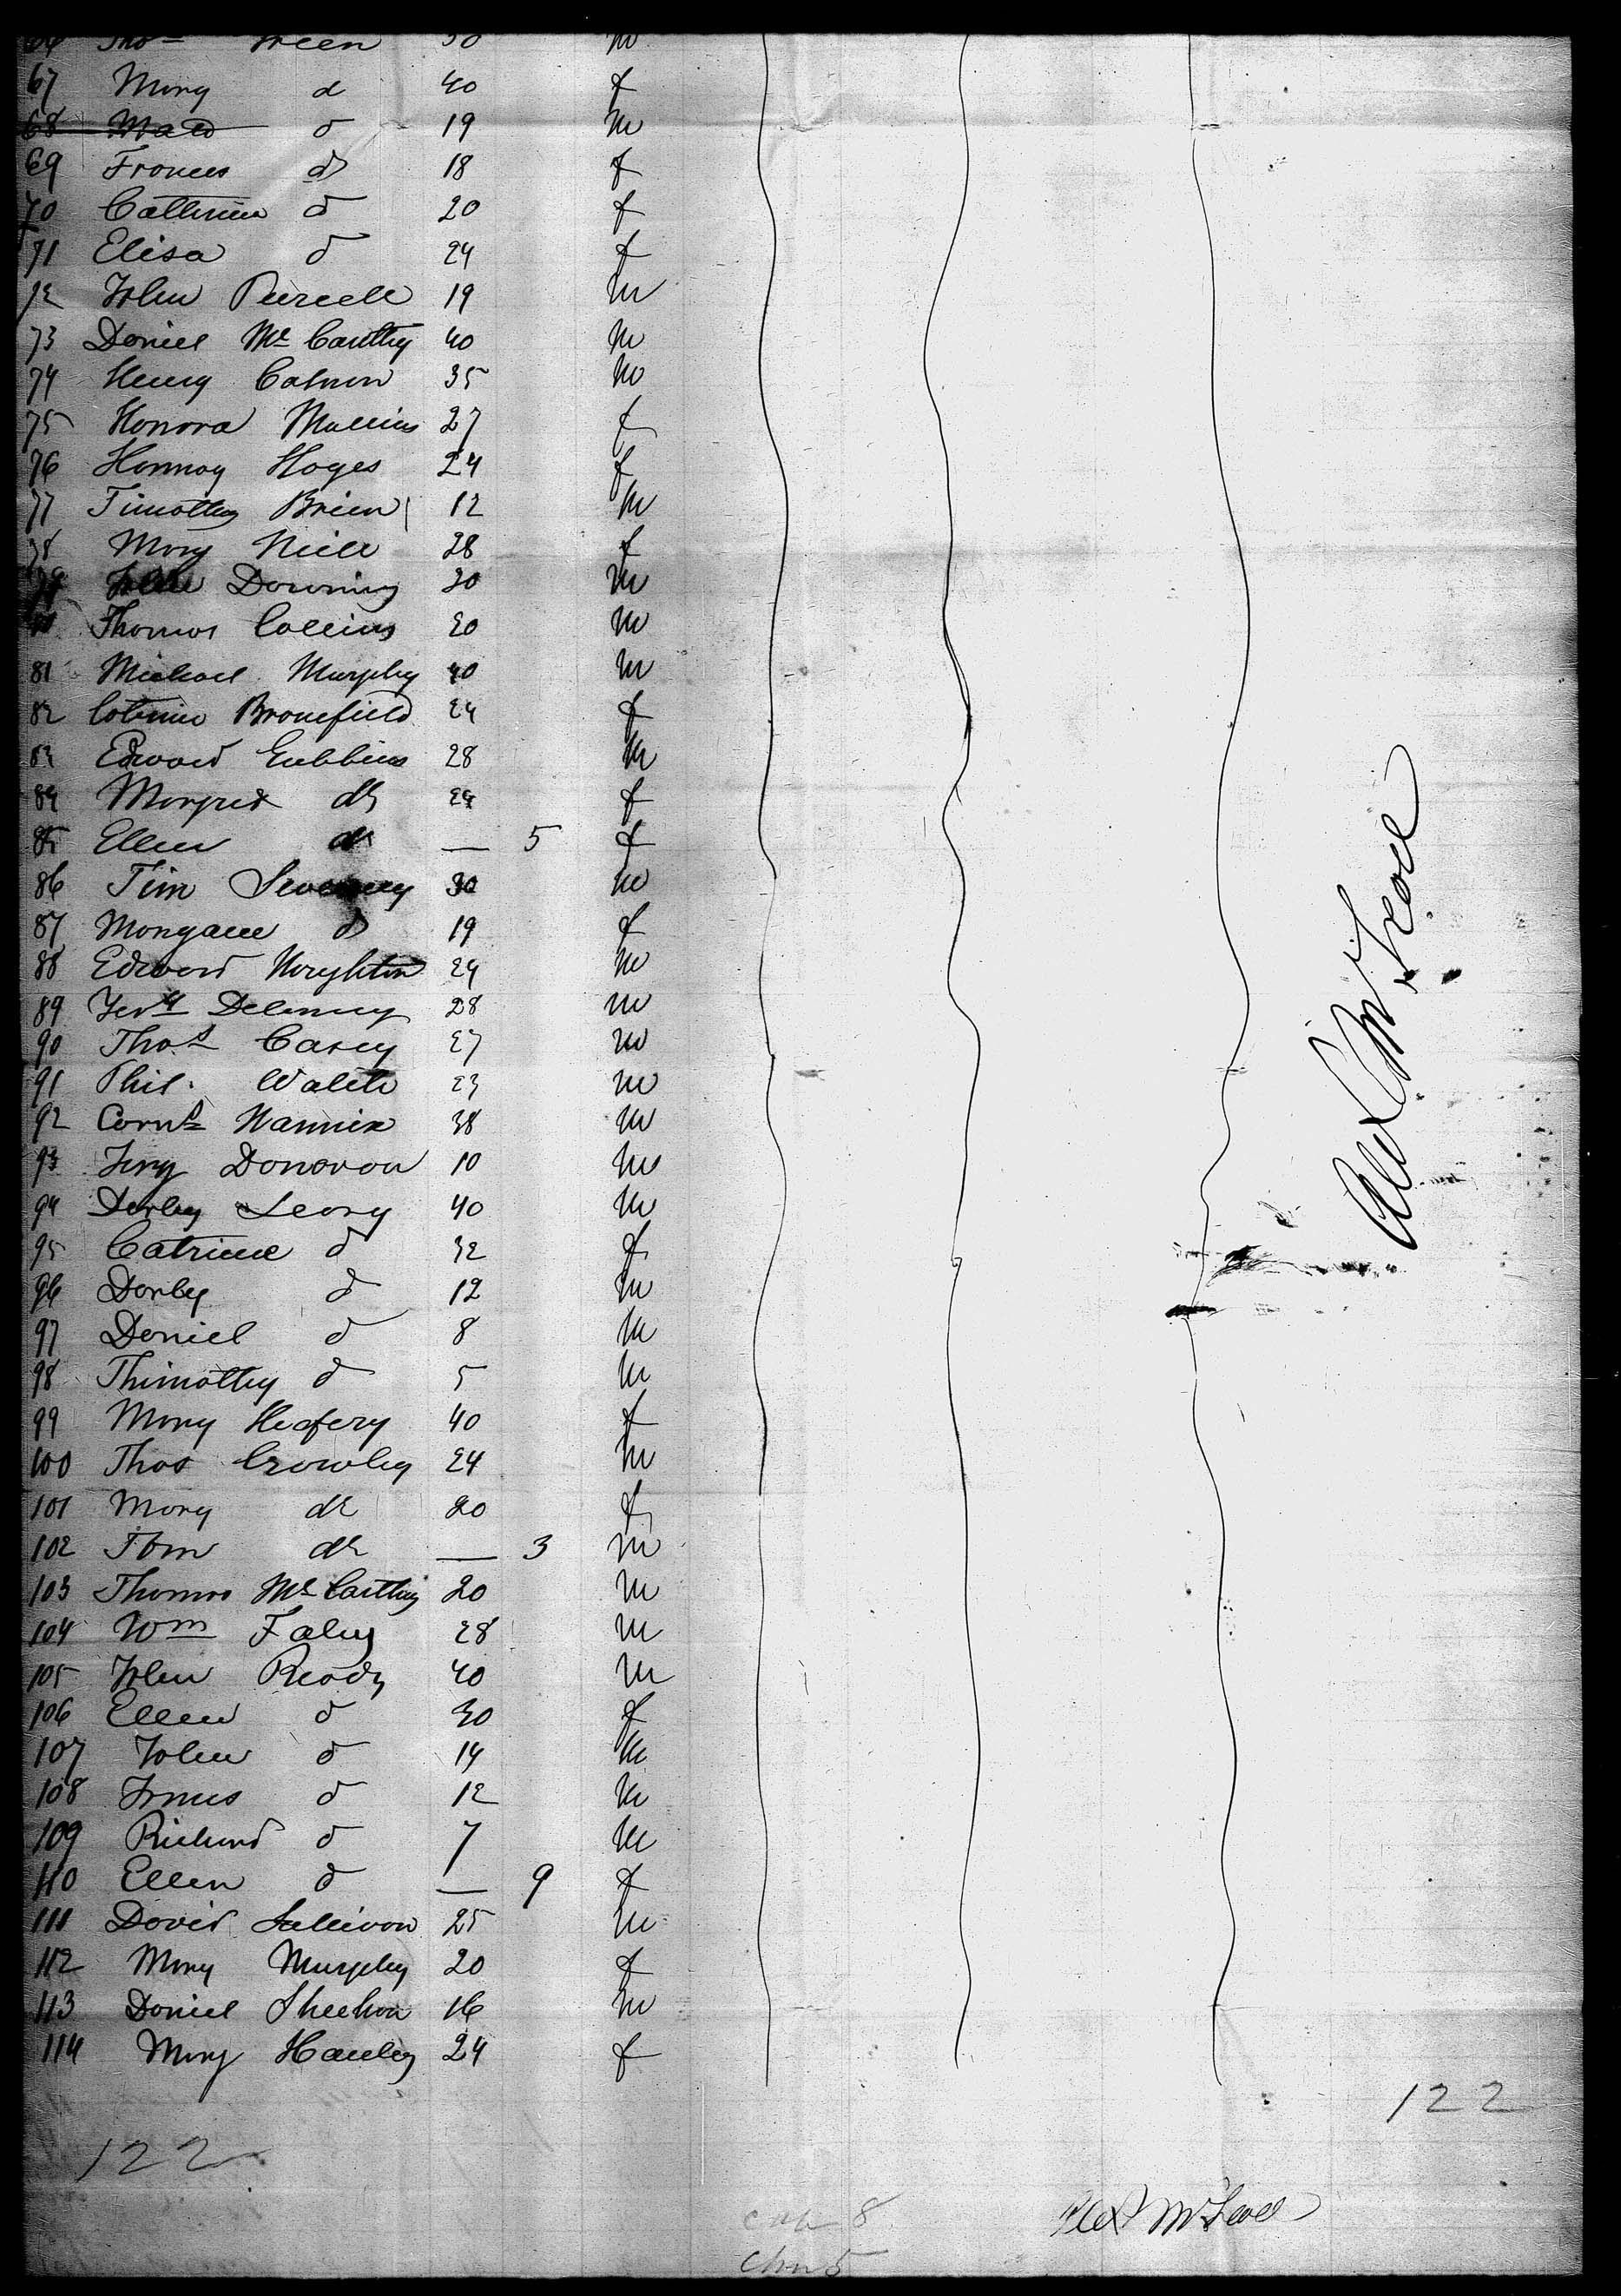 Green 30 m
67 Mary d 40 f
68 d 19 m
69 Frances do 18 f
70 Catherine d 20 f
71 Elisa d 24 f
72 John Purcell 19 m
73 Daniel Mc Carthy 40 m
74 Henry 35 m
75 Honora Mullins 27 f
76 Hannay Hayes 24 f
77 Timothy Brien 12 m
78 Mary Niell 28 f
79 John Downing 20 m
Thomas Collins 20 m
81 Michael Murphy 40 m
82 24 f
83 Edward Gubbins 28 m
84 Margret do 24 f
85 Ellen do — 5 f
86 Tim 30 m
87 d 19 f
88 Edward 24 m
89 Delaney 28 m
90 Thos Casey 27 m
91 Phil. Walsh 23 m
92 Corns Hannix 38 m
93 Jery Donovan 10 m
94 Darby Leary 40 m
95 Catrine d 32 f
96 Darby d 12 m
97 Daniel d 8 m
98 Thimothy d 5 m
99 Mary 40 f
100 Thos Crowley 24 m
101 Mary do 20 f
102 Tom do — 3 m
103 Thomas Mc Carthy 20 m
104 Wm Faley 28 m
105 John Ready 40 m
106 Ellen d 30 f
107 John d 14 m
108 James d 12 m
109 Richard d 7 m
110 Ellen d — 9 f
111 David Sullivan 25 m
112 Mary Murphy 20 f
113 Daniel Sheehan 16 m
114 Mary Hanley 24 f
122
122
8
Chn 5